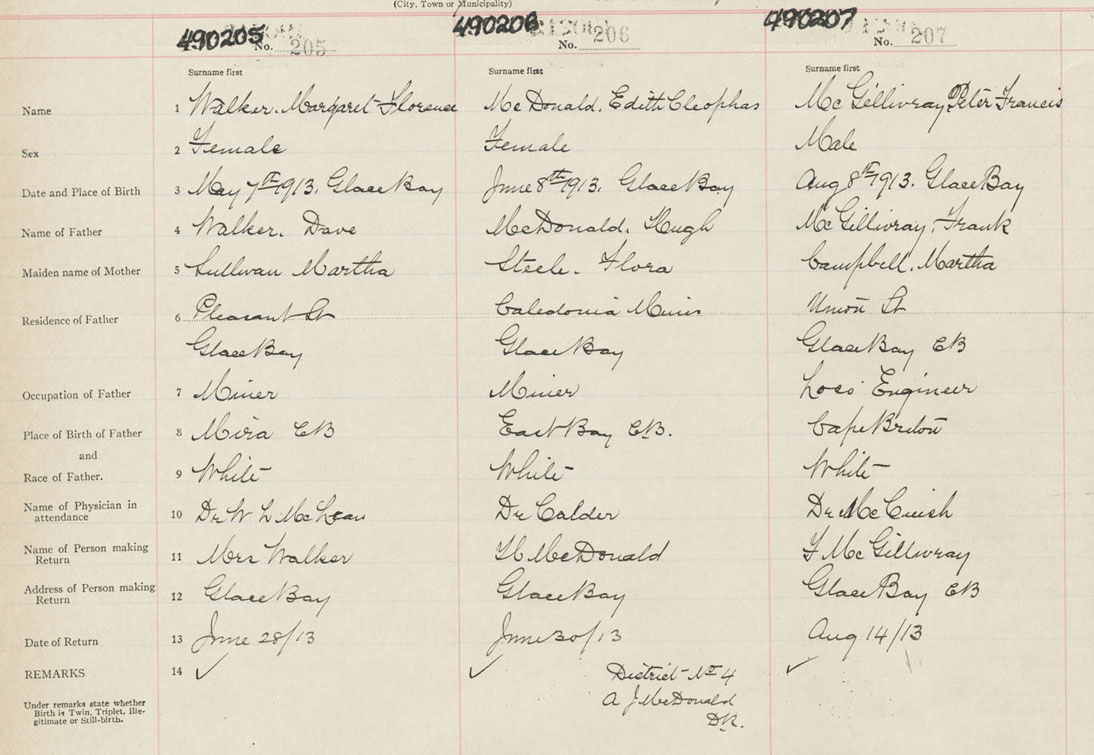 (City, Town or Municipality)
490205 490206 490207
No. 205 No. 206 No. 207
Surname first Surname first Surname first
Name 1 Walker. Margaret Florence McDonald. Edith Cleophas McGillivray Peter Francis
Sex 2 Female Female Male
Date and Place of Birth 3 May 7th 1913. Glace Bay June 8th 1913. Glace Bay Aug 8th 1913. Glace Bay
Name of Father 4 Walker. Dave McDonald. Hugh McGillivray. Frank
Maiden name of Mother 5 Sullivan Martha Steele. Flora Campbell. Martha
Residence of Father 6 Pleasant St Caledonia Mines Union St
Glace Bay Glace Bay Glace Bay CB
Occupation of Father 7 Miner Miner Loco Engineer
Place of Birth of Father 8 Mira CB East Bay CB. Cape Breton
and
Race of Father. 9 White White White
Name of Physician in
attendance 10 Dr W L McLean Dr Calder Dr McCuish
Name of Person making
Return 11 Mrs Walker H McDonald F McGillivray
Address of Person making
Return 12 Glace Bay Glace Bay Glace Bay CB
Date of Return 13 June 28/13 June 30/13 Aug 14/13
REMARKS 14 ✓ ✓ District No 4 ✓
Under remarks state whether
Birth is Twin, Triplet, Ille-
gitimate or Still-birth.
A J McDonald
DR.